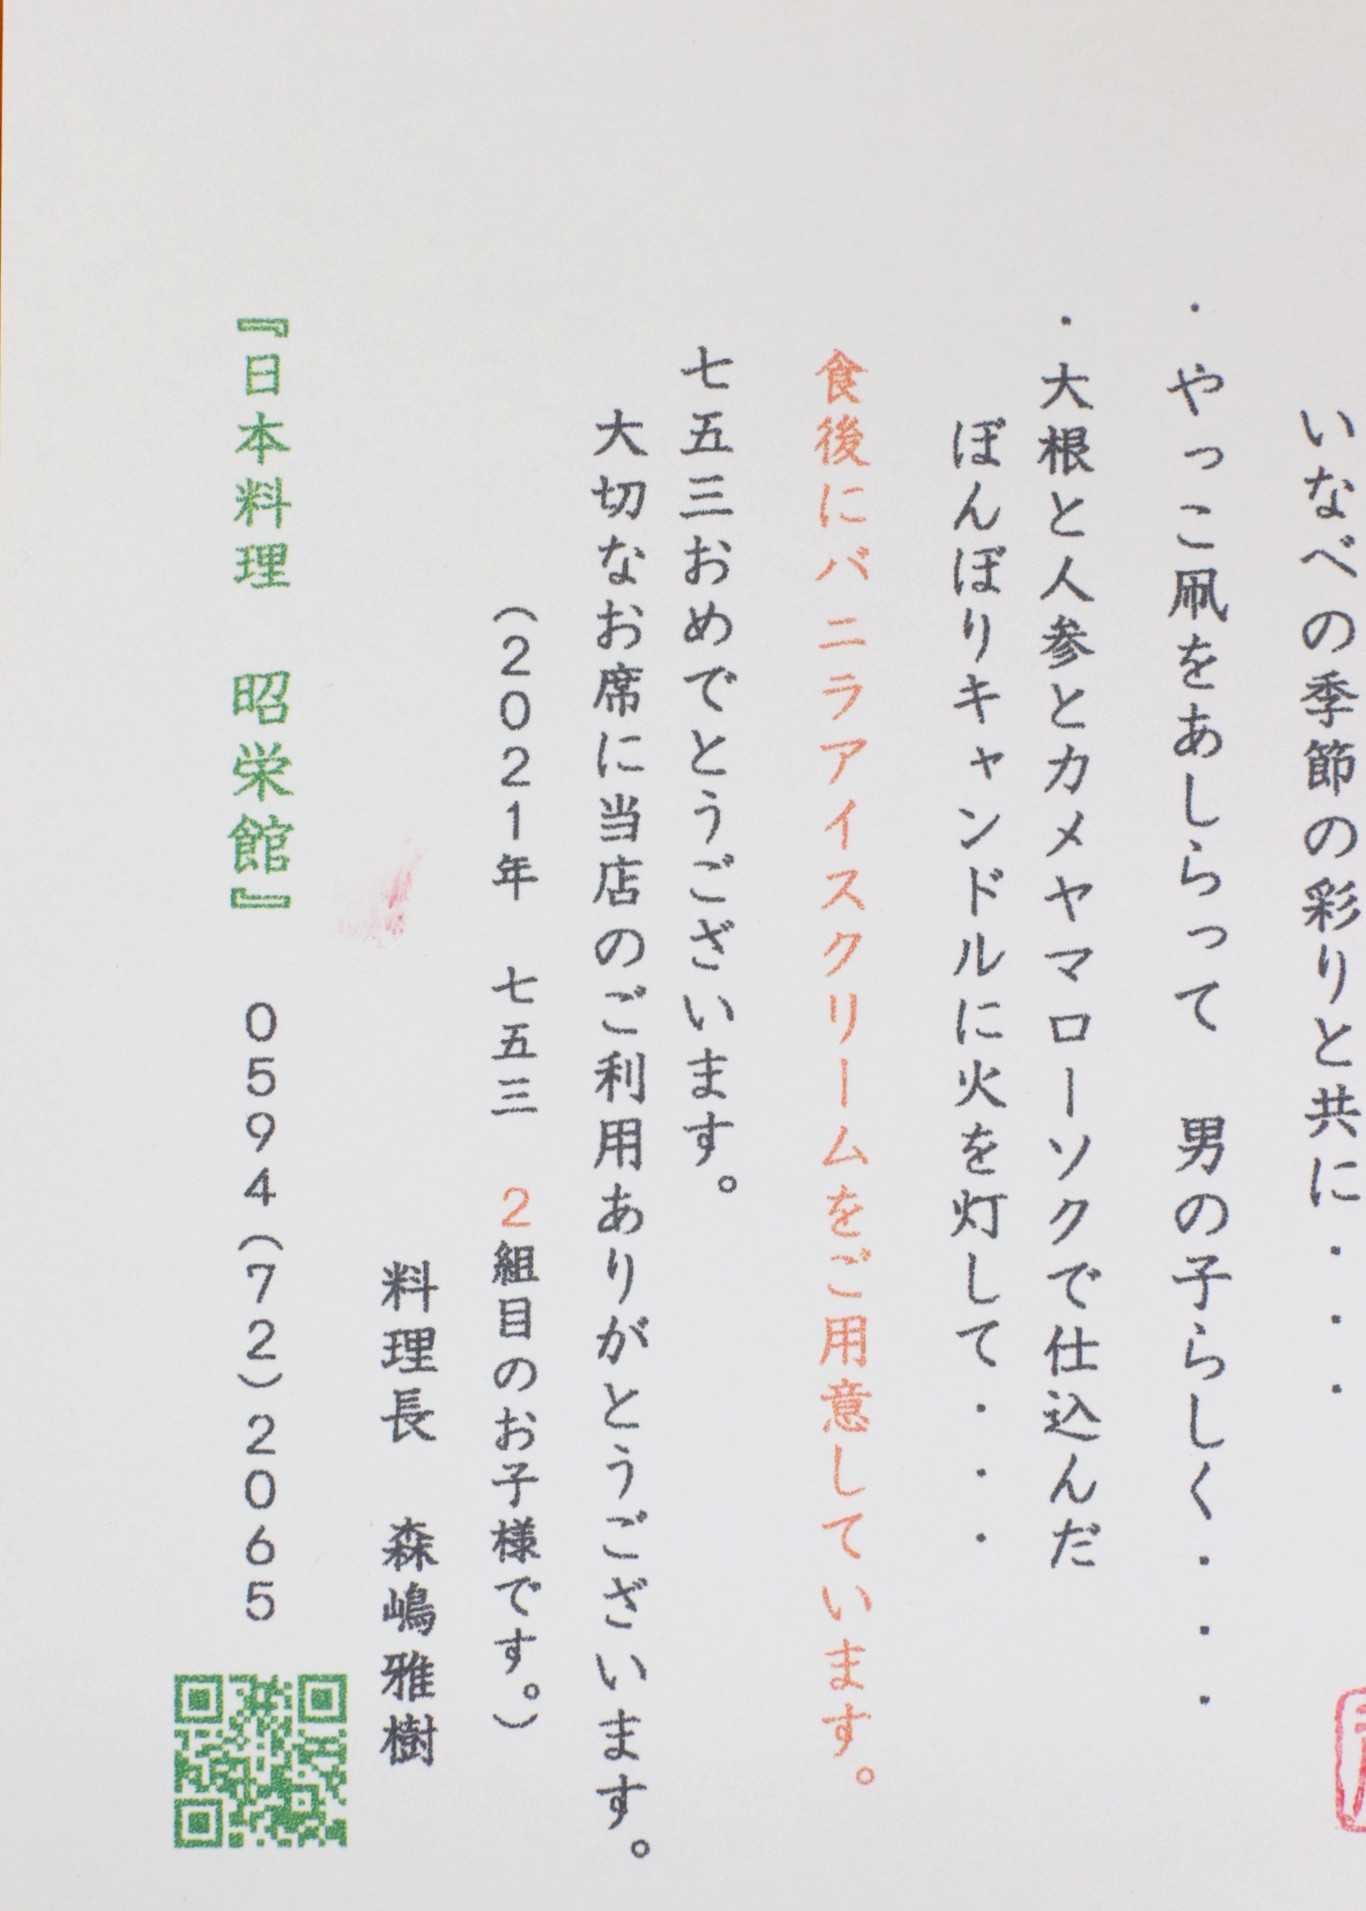 いなべの季節の彩りと共に・・・
・やっこ凧をあしらって　男の子らしく・・・
・大根と人参とカメヤマローソクで仕込んだ
ぼんぼりキャンドルに火を灯して・・・
食後にバニラアイスクリームをご用意しています。
七五三おめでとうございます。
大切なお席に当店のご利用ありがとうございます。
（２０２１年　七五三　２組目のお子様です。）
料理長　森嶋雅樹
『日本料理　昭栄館』　０５９４（７２）２０６５